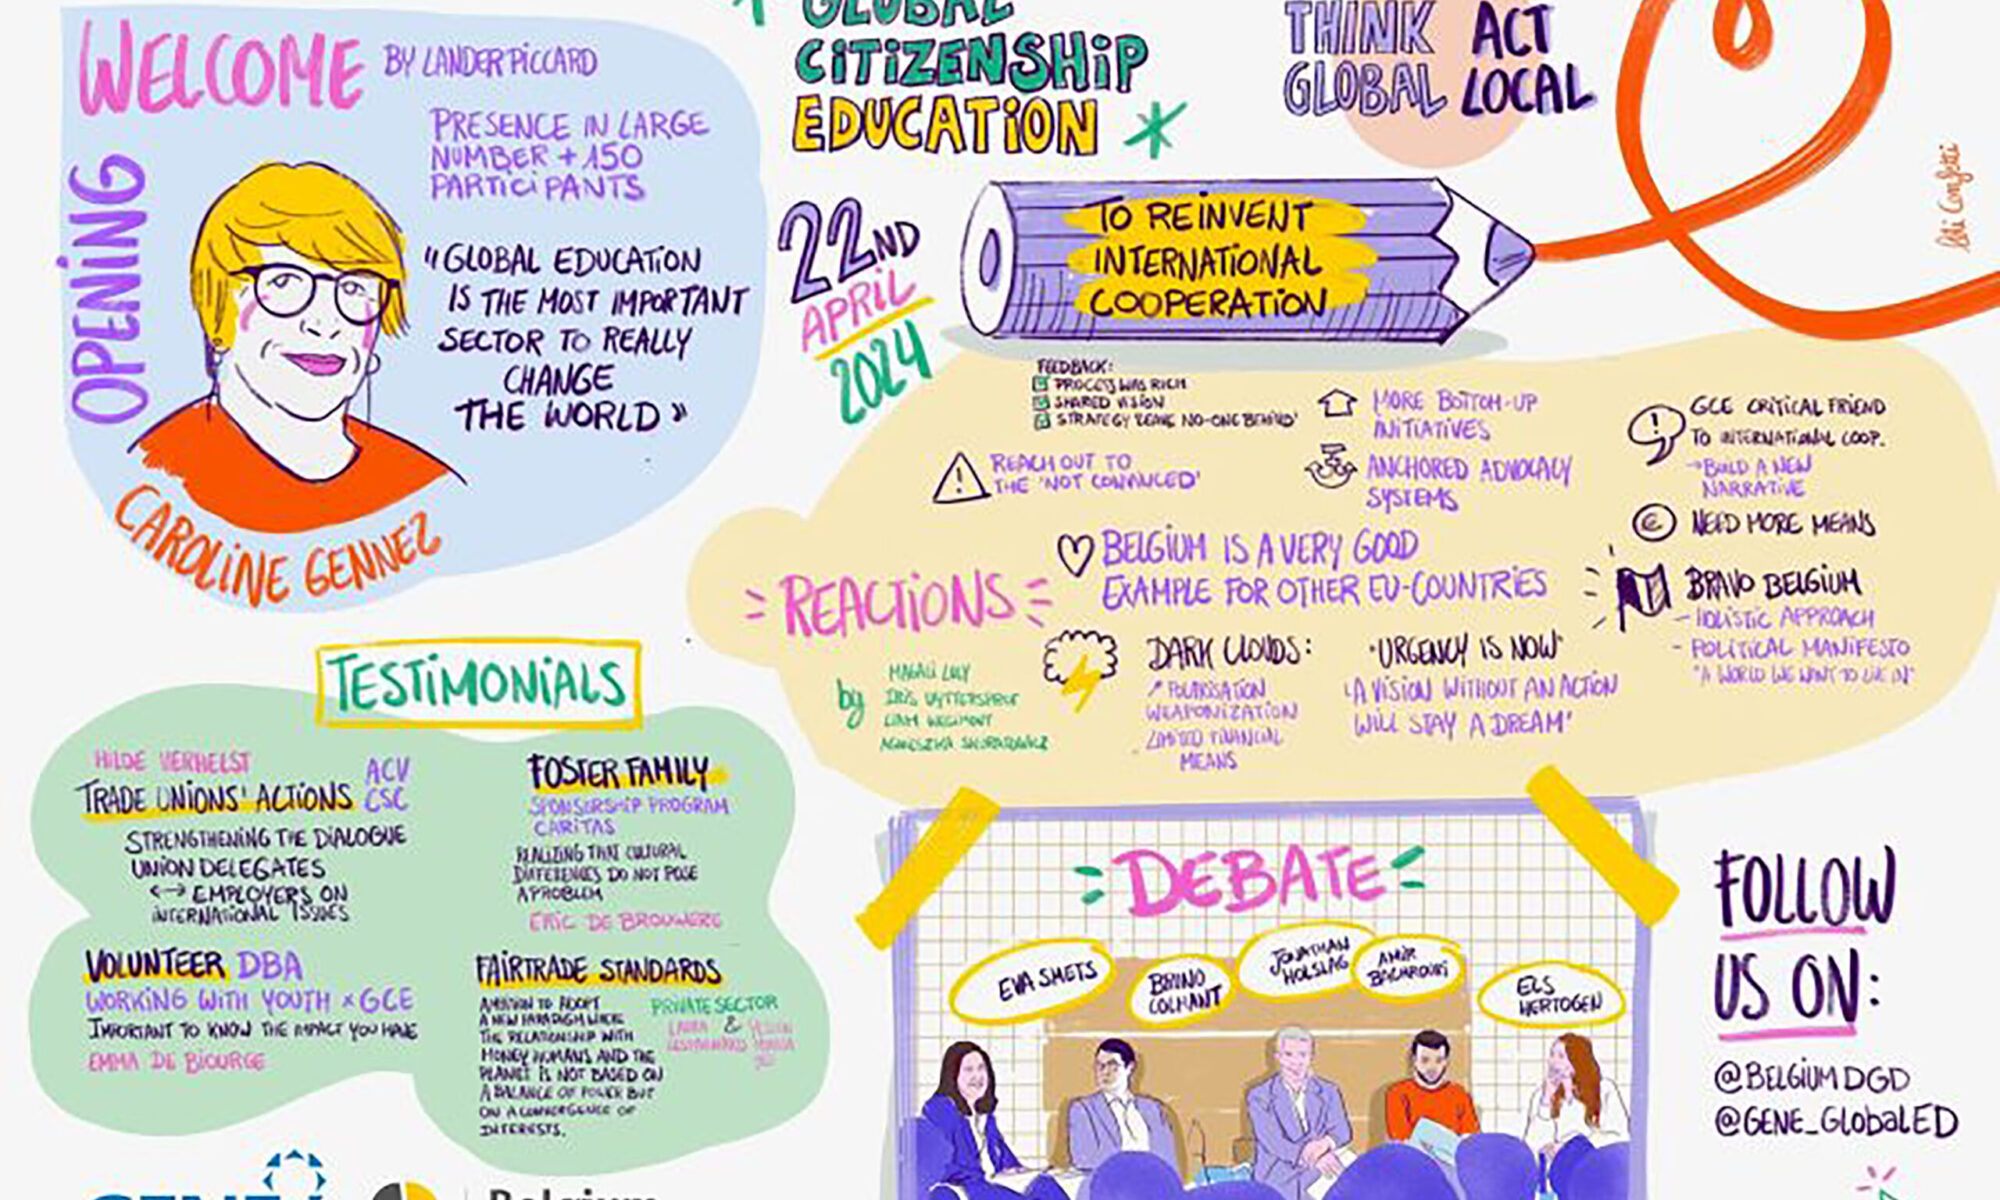 WELCOME BY LANDER PICCARD
OPENING
PRESENCE IN LARGE
NUMBER + 150
PARTICIPANTS
"GLOBAL EDUCATION
IS THE MOST IMPORTANT
SECTOR TO REALLY
CHANGE
THE WORLD"
CAROLINE GENNEZ
GLOBAL
CITIZENSHIP
EDUCATION
THINK ACT
GLOBAL LOCAL
22ND
APRIL
2024
TO REINVENT
INTERNATIONAL
COOPERATION
FEEDBACK:
PROCESS WAS RICH
SHARED VISION
STRATEGY 'LEAVE NO-ONE BEHIND'
REACH OUT TO
THE 'NOT CONVINCED'
MORE BOTTOM-UP
INITIATIVES
ANCHORED ADVOCACY
SYSTEMS
GCE CRITICAL FRIEND
TO INTERNATIONAL COOP.
→ BUILD A NEW
NARRATIVE
€ NEED MORE MEANS
BELGIUM IS A VERY GOOD
EXAMPLE FOR OTHER EU-COUNTRIES
BRAVO BELGIUM
- HOLISTIC APPROACH
- POLITICAL MANIFESTO
"A WORLD WE WANT TO LIVE IN"
REACTIONS
by
MAGALI
LIAM WEGIMONT
AGNIESZKA SKURATOWICZ
DARK CLOUDS:
↗ POLARISATION
WEAPONIZATION
LIMITED FINANCIAL
MEANS
'URGENCY IS NOW'
'A VISION WITHOUT AN ACTION
WILL STAY A DREAM'
TESTIMONIALS
HILDE VERHELST
TRADE UNIONS' ACTIONS
ACV
CSC
STRENGTHENING THE DIALOGUE
UNION DELEGATES
<-> EMPLOYERS ON
INTERNATIONAL ISSUES
FOSTER FAMILY
SPONSORSHIP PROGRAM
CARITAS
REALIZING THAT CULTURAL
DIFFERENCES DO NOT POSE
A PROBLEM
ERIC DE BROUWERE
VOLUNTEER DBA
WORKING WITH YOUTH x GCE
IMPORTANT TO KNOW THE IMPACT YOU HAVE
EMMA DE BIOURGE
FAIRTRADE STANDARDS
AMBITION TO ADOPT
A NEW PARADIGM WHERE
THE RELATIONSHIP WITH
MONEY HUMANS AND THE
PLANET IS NOT BASED ON
A BALANCE OF POWER BUT
ON A CONVERGENCE OF
INTERESTS.
PRIVATE SECTOR
LAURA &
DEBATE
EVA SMETS
BRUNO
COLMANT
JONATHAN
HOLSLAG
AMIR
BACHROURI
ELS
HERTOGEN
FOLLOW
US ON:
@BELGIUMDGD
@GENE_GLOBALED
Belgium